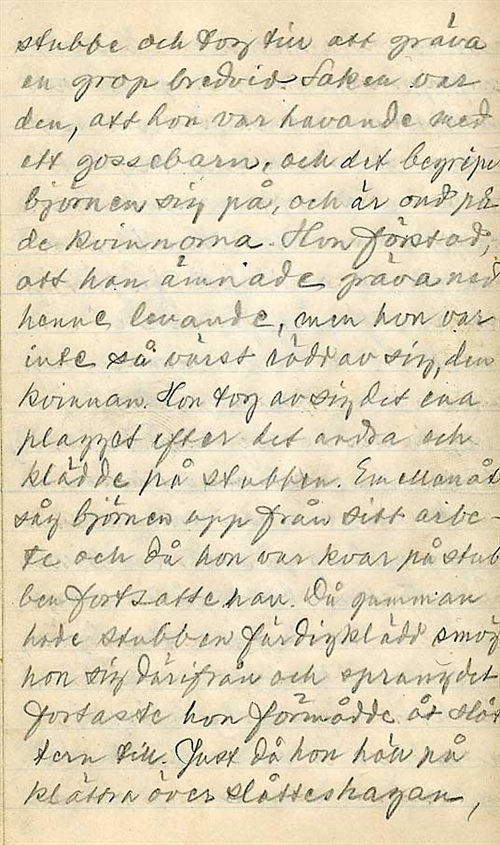 stubbe och tog till att gräva
en grop bredvid. Saken var
den, att hon var havande med
ett gossebarn, och det begriper
björnen sig på, och är ond på
de kvinnorna. Hon förstod,
att han ämnade gräva ned
henne levande, men hon var
inte så värst rädd av sig, den
kvinnan. Hon tog av sig det ena
plagget efter det andra och
klädde på stubben. Emellanåt
såg björnen upp från sitt arbe-
te och då hon var kvar på stub
ben fortsatte han. Då gumman
hade stubben färdigklädd smög
hon sig därifrån och sprang det
fortaste hon förmådde åt slåt
tern till. Just då hon höll på
klättra över slåtteshagan,